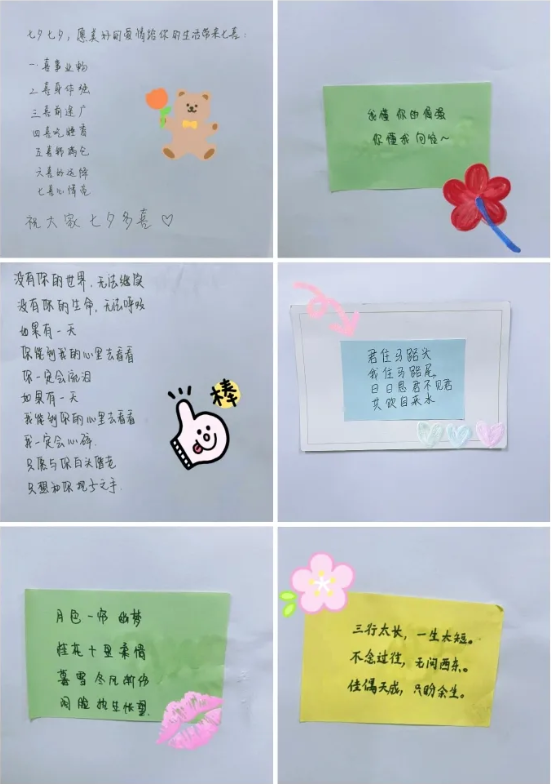 七夕七夕，愿美好的爱情给你的生活带来七喜：
一喜事业畅
二喜身体强
三喜前途广
四喜吃睡香
五喜鼓钱包
六喜好运伴
七喜心情亮
祝大家七夕多喜♡
我懂你的倔强
你懂我的
没有你的世界，无法继续
没有你的生命，无法呼吸
如果有一天
你能到我的心里去看看
你一定会流泪
如果有一天
我能到你的心里去看看
我一定会心碎
只愿与你白头偕老
只想和你执子之手
棒
君住马路头
我住马路尾
日日思君不见君
共饮自来水
月色一帘幽梦
桂花十里柔情
暮雪
三行太长，一生太短。
不念过往，无问西东。
佳偶天成，只盼余生。